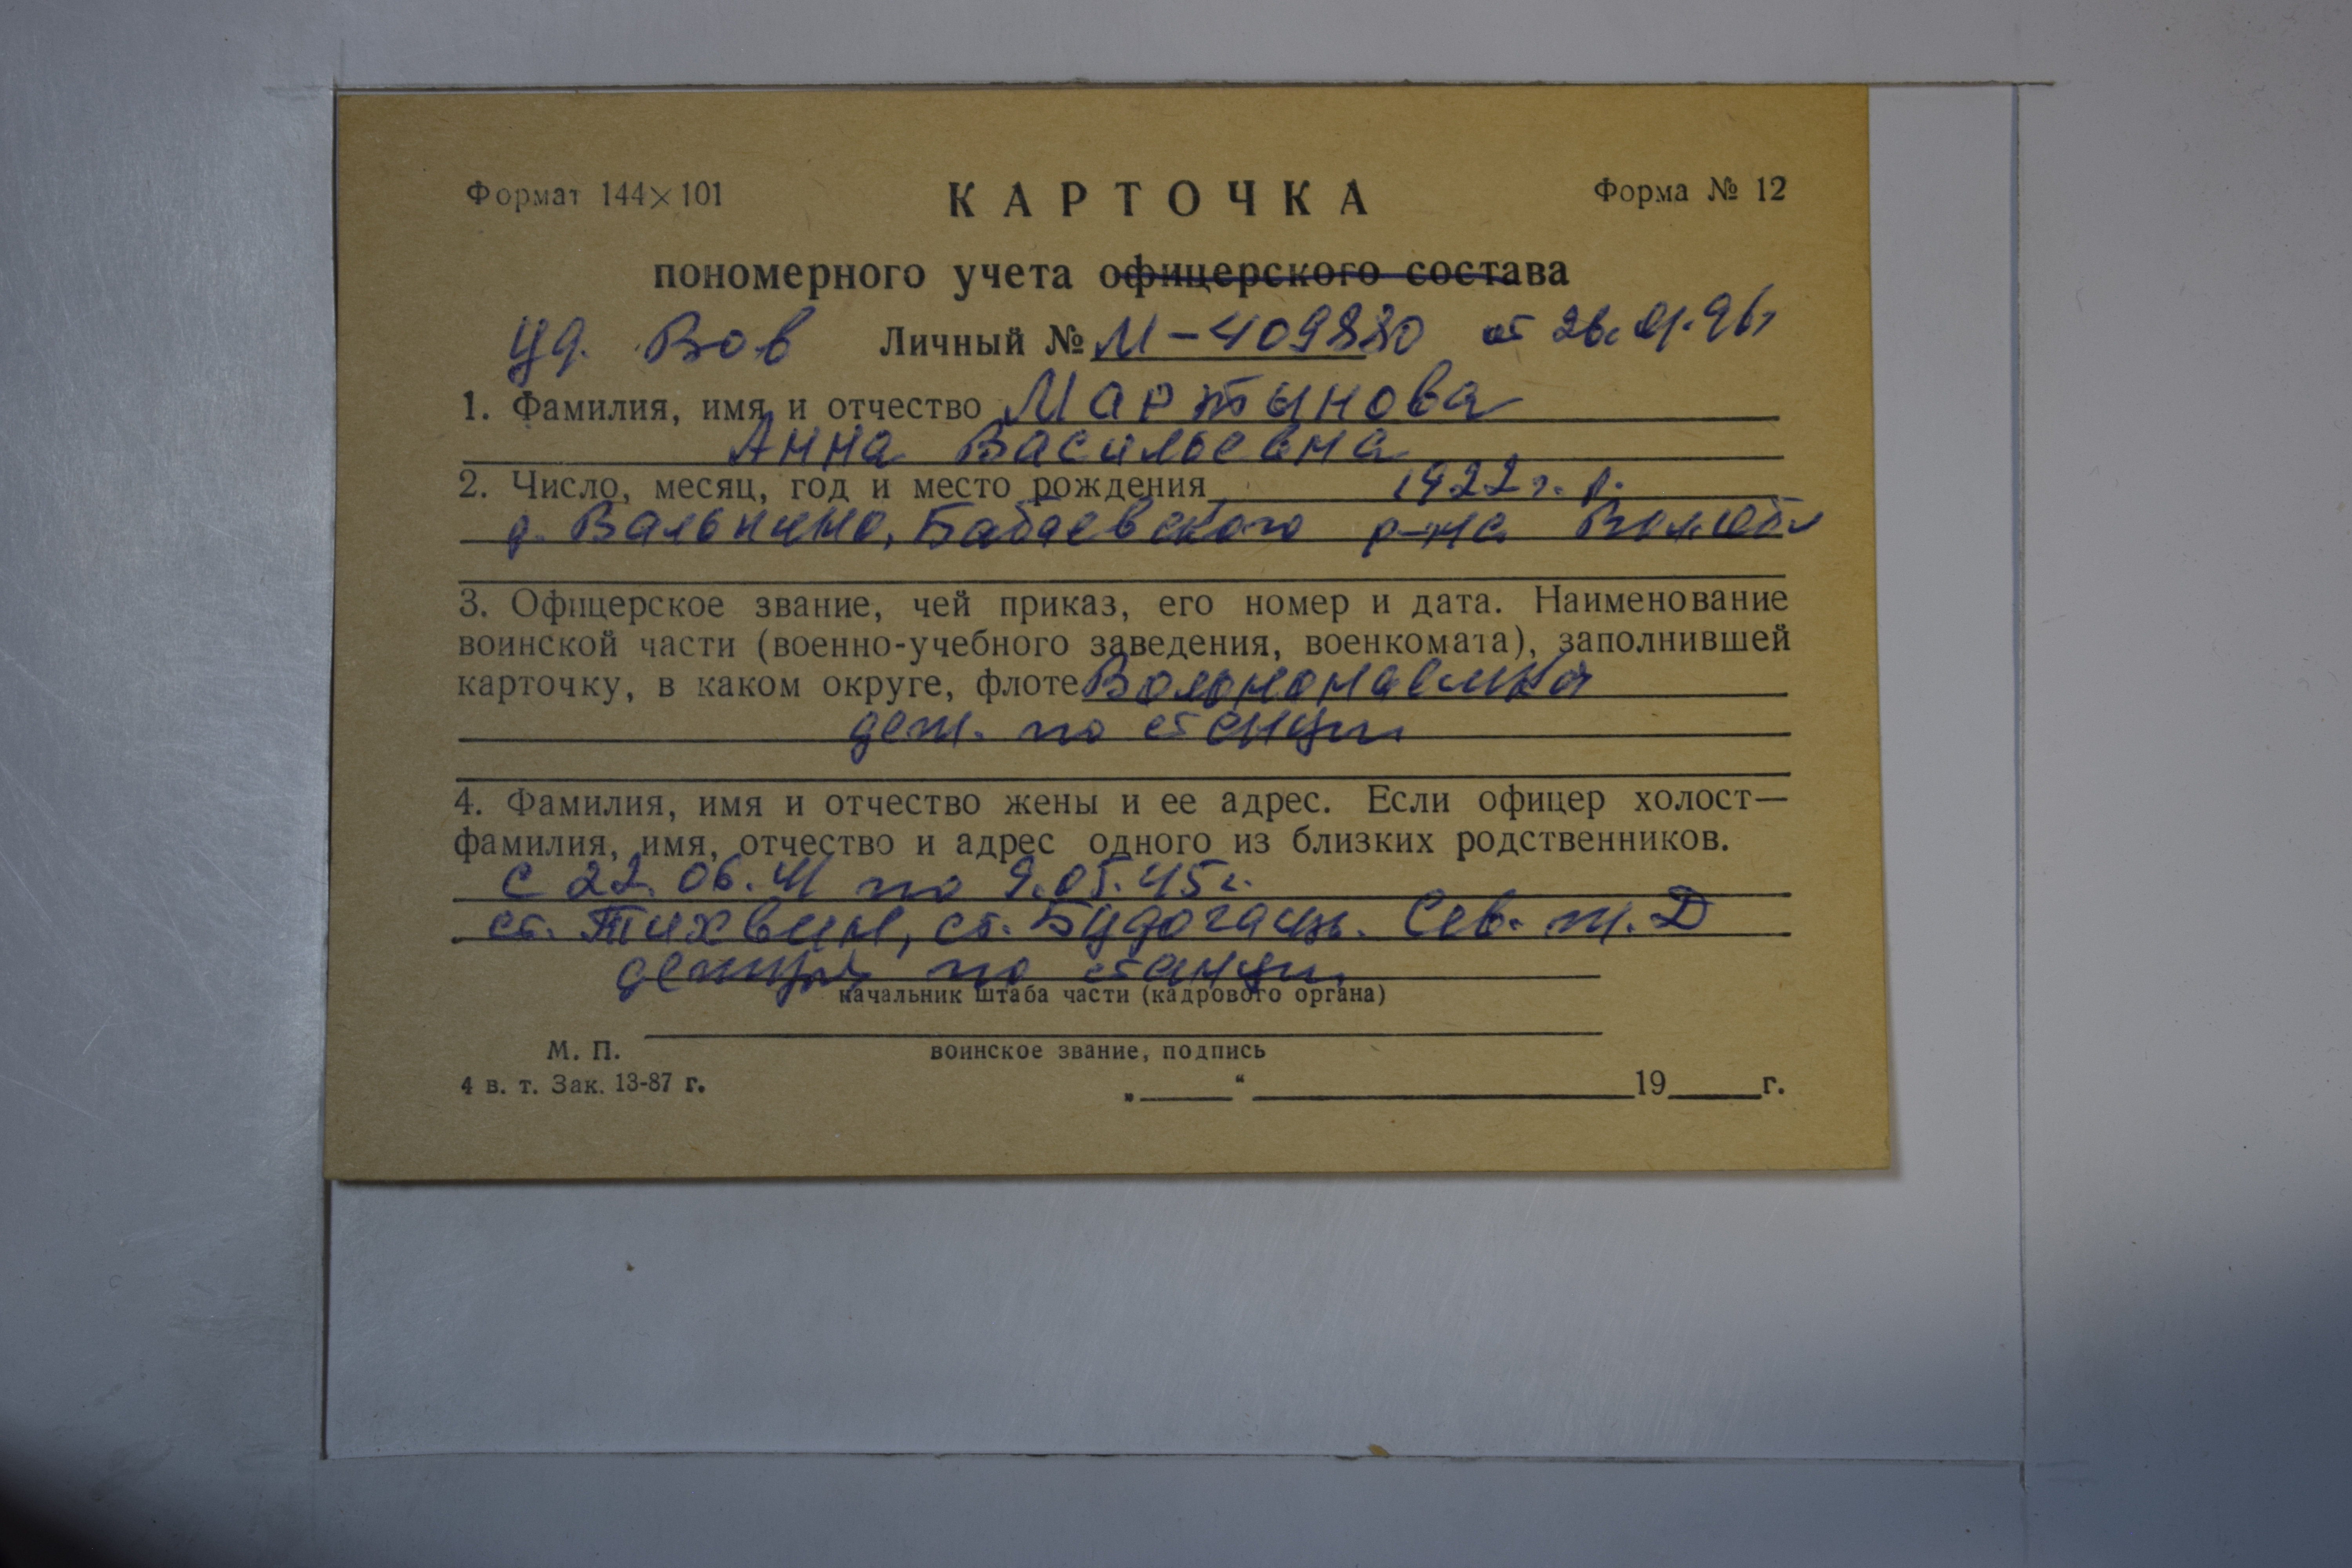 Формат 144×101 КАРТОЧКА Форма № 12
пономерного учета офицерского состава
Уд. Вов Личный № М-409880 от 26.01.96г
1. Фамилия, имя и отчество Мартынова
Анна Васильевна
2. Число, месяц, год и место рождения 1922 г. р.
д. Бабаевского р-на
3. Офицерское звание, чей приказ, его номер и дата. Наименование
воинской части (военно-учебного заведения, военкомата), заполнившей
карточку, в каком округе, флоте Вольнонаемная
деж. по станции
4. Фамилия, имя и отчество жены и ее адрес. Если офицер холост—
фамилия, имя, отчество и адрес одного из близких родственников.
с 22.06.41 по 9.05.45г.
ст. Тихвин, ст. Будогащь. Сев. ж.Д
по станции
начальник штаба части (кадрового органа)
М. П. воинское звание, подпись
4 в. т. Зак. 13-87 г. „ “ 19 г.